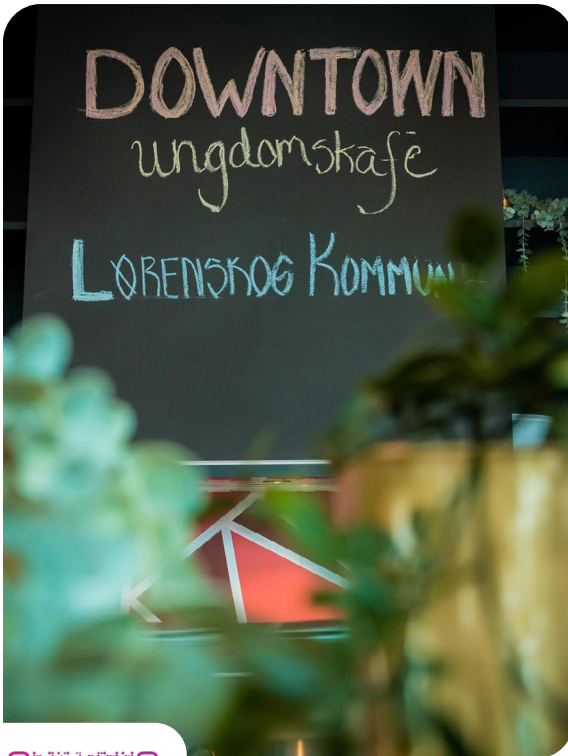 DOWNTOWN
ungdomskafé
LØRENSKOG KOMMUN